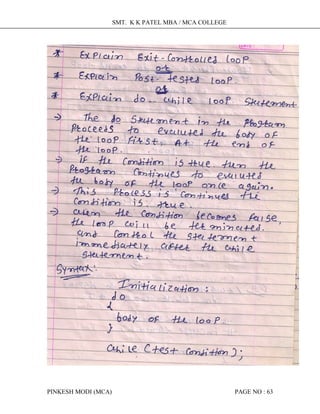 SMT. K K PATEL MBA / MCA COLLEGE
* Explain Exit-Controlled loop.
OR
* Explain Post-tested loop.
OR
* Explain do-while loop Statement
→ The do Statement in the Program
Proceeds to evaluated the body of
the loop first. At the end of
the loop.
→ if the Condition is true. then the
Program Continues to evaluted
the body of the loop once again.
→ This Process is Continued the
Condition is true.
→ when the Condition becomes false,
the loop will be terminated.
and Control the statement
immediately after the while
statement.
Syntax:
Initialization :
do
{
body of the loop
}
while (test condition);
PINKESH MODI (MCA) PAGE NO : 63